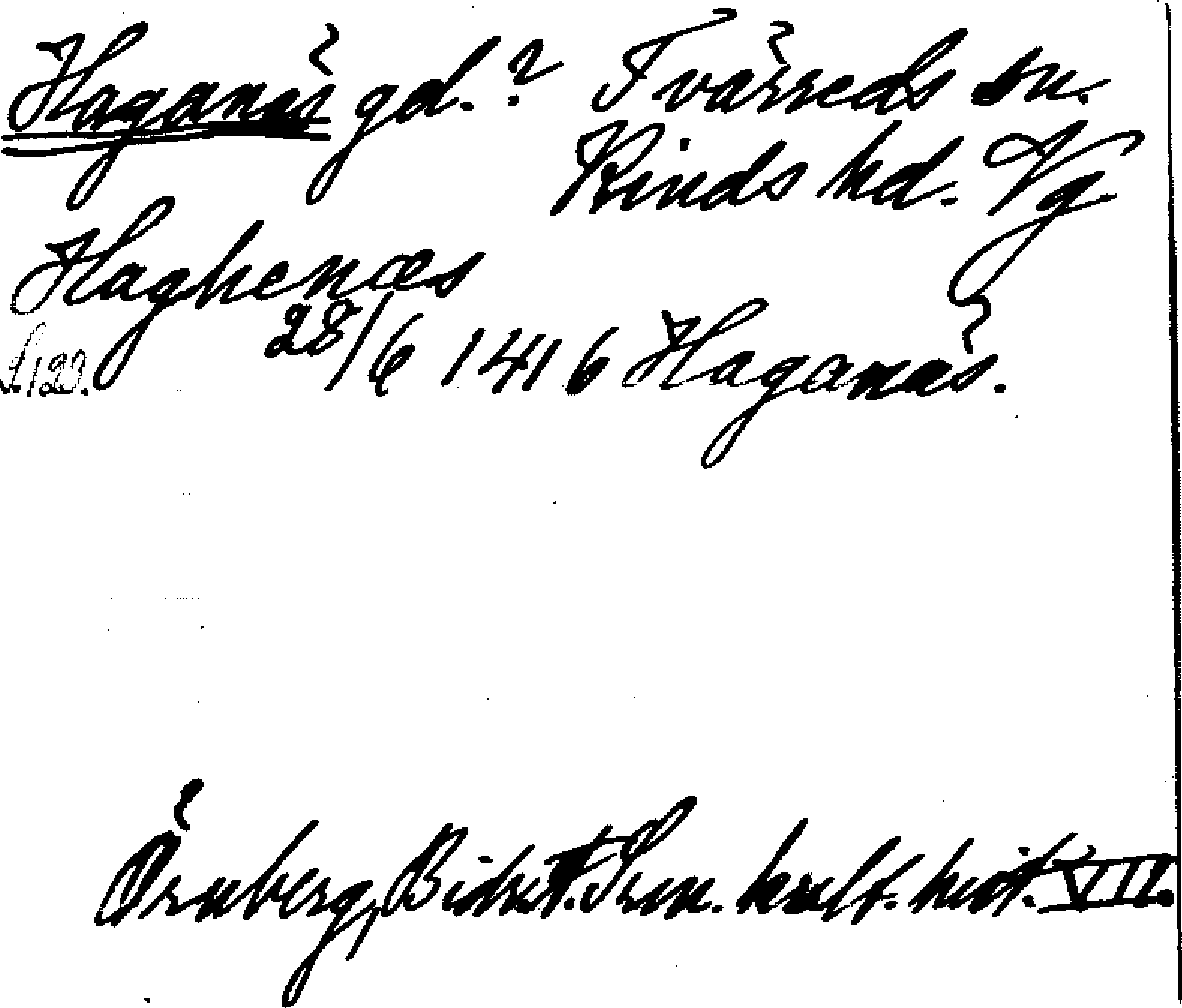 Haganäs gd.? Tvärreds sn.
Kinds hd. Vg
Haghenæs
S. 122. 28/6 1416 Haganäs.
Örnberg, Bidr. t. Sven. kult. hist. VII.